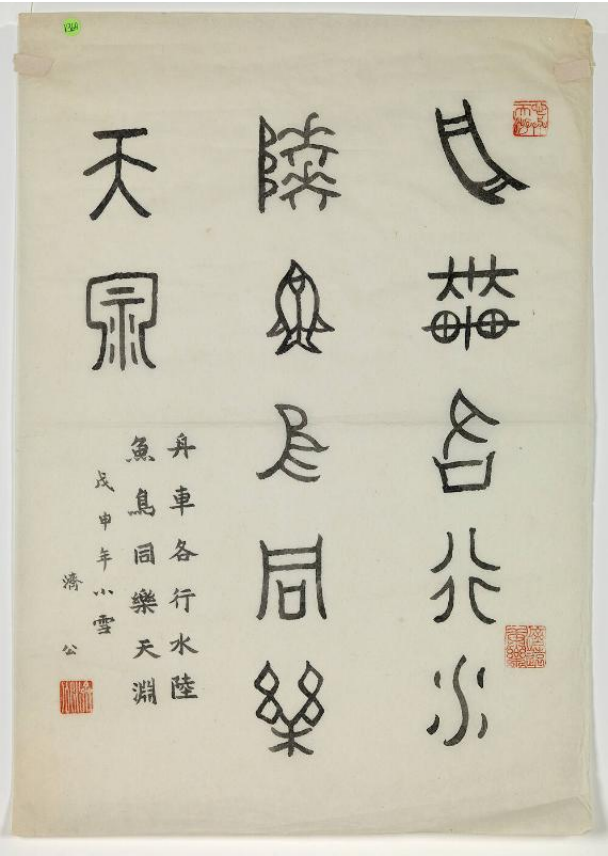 舟車各行水
陸魚鳥同樂
天淵
舟車各行水陸
魚鳥同樂天淵
戊申年小雪
濟公